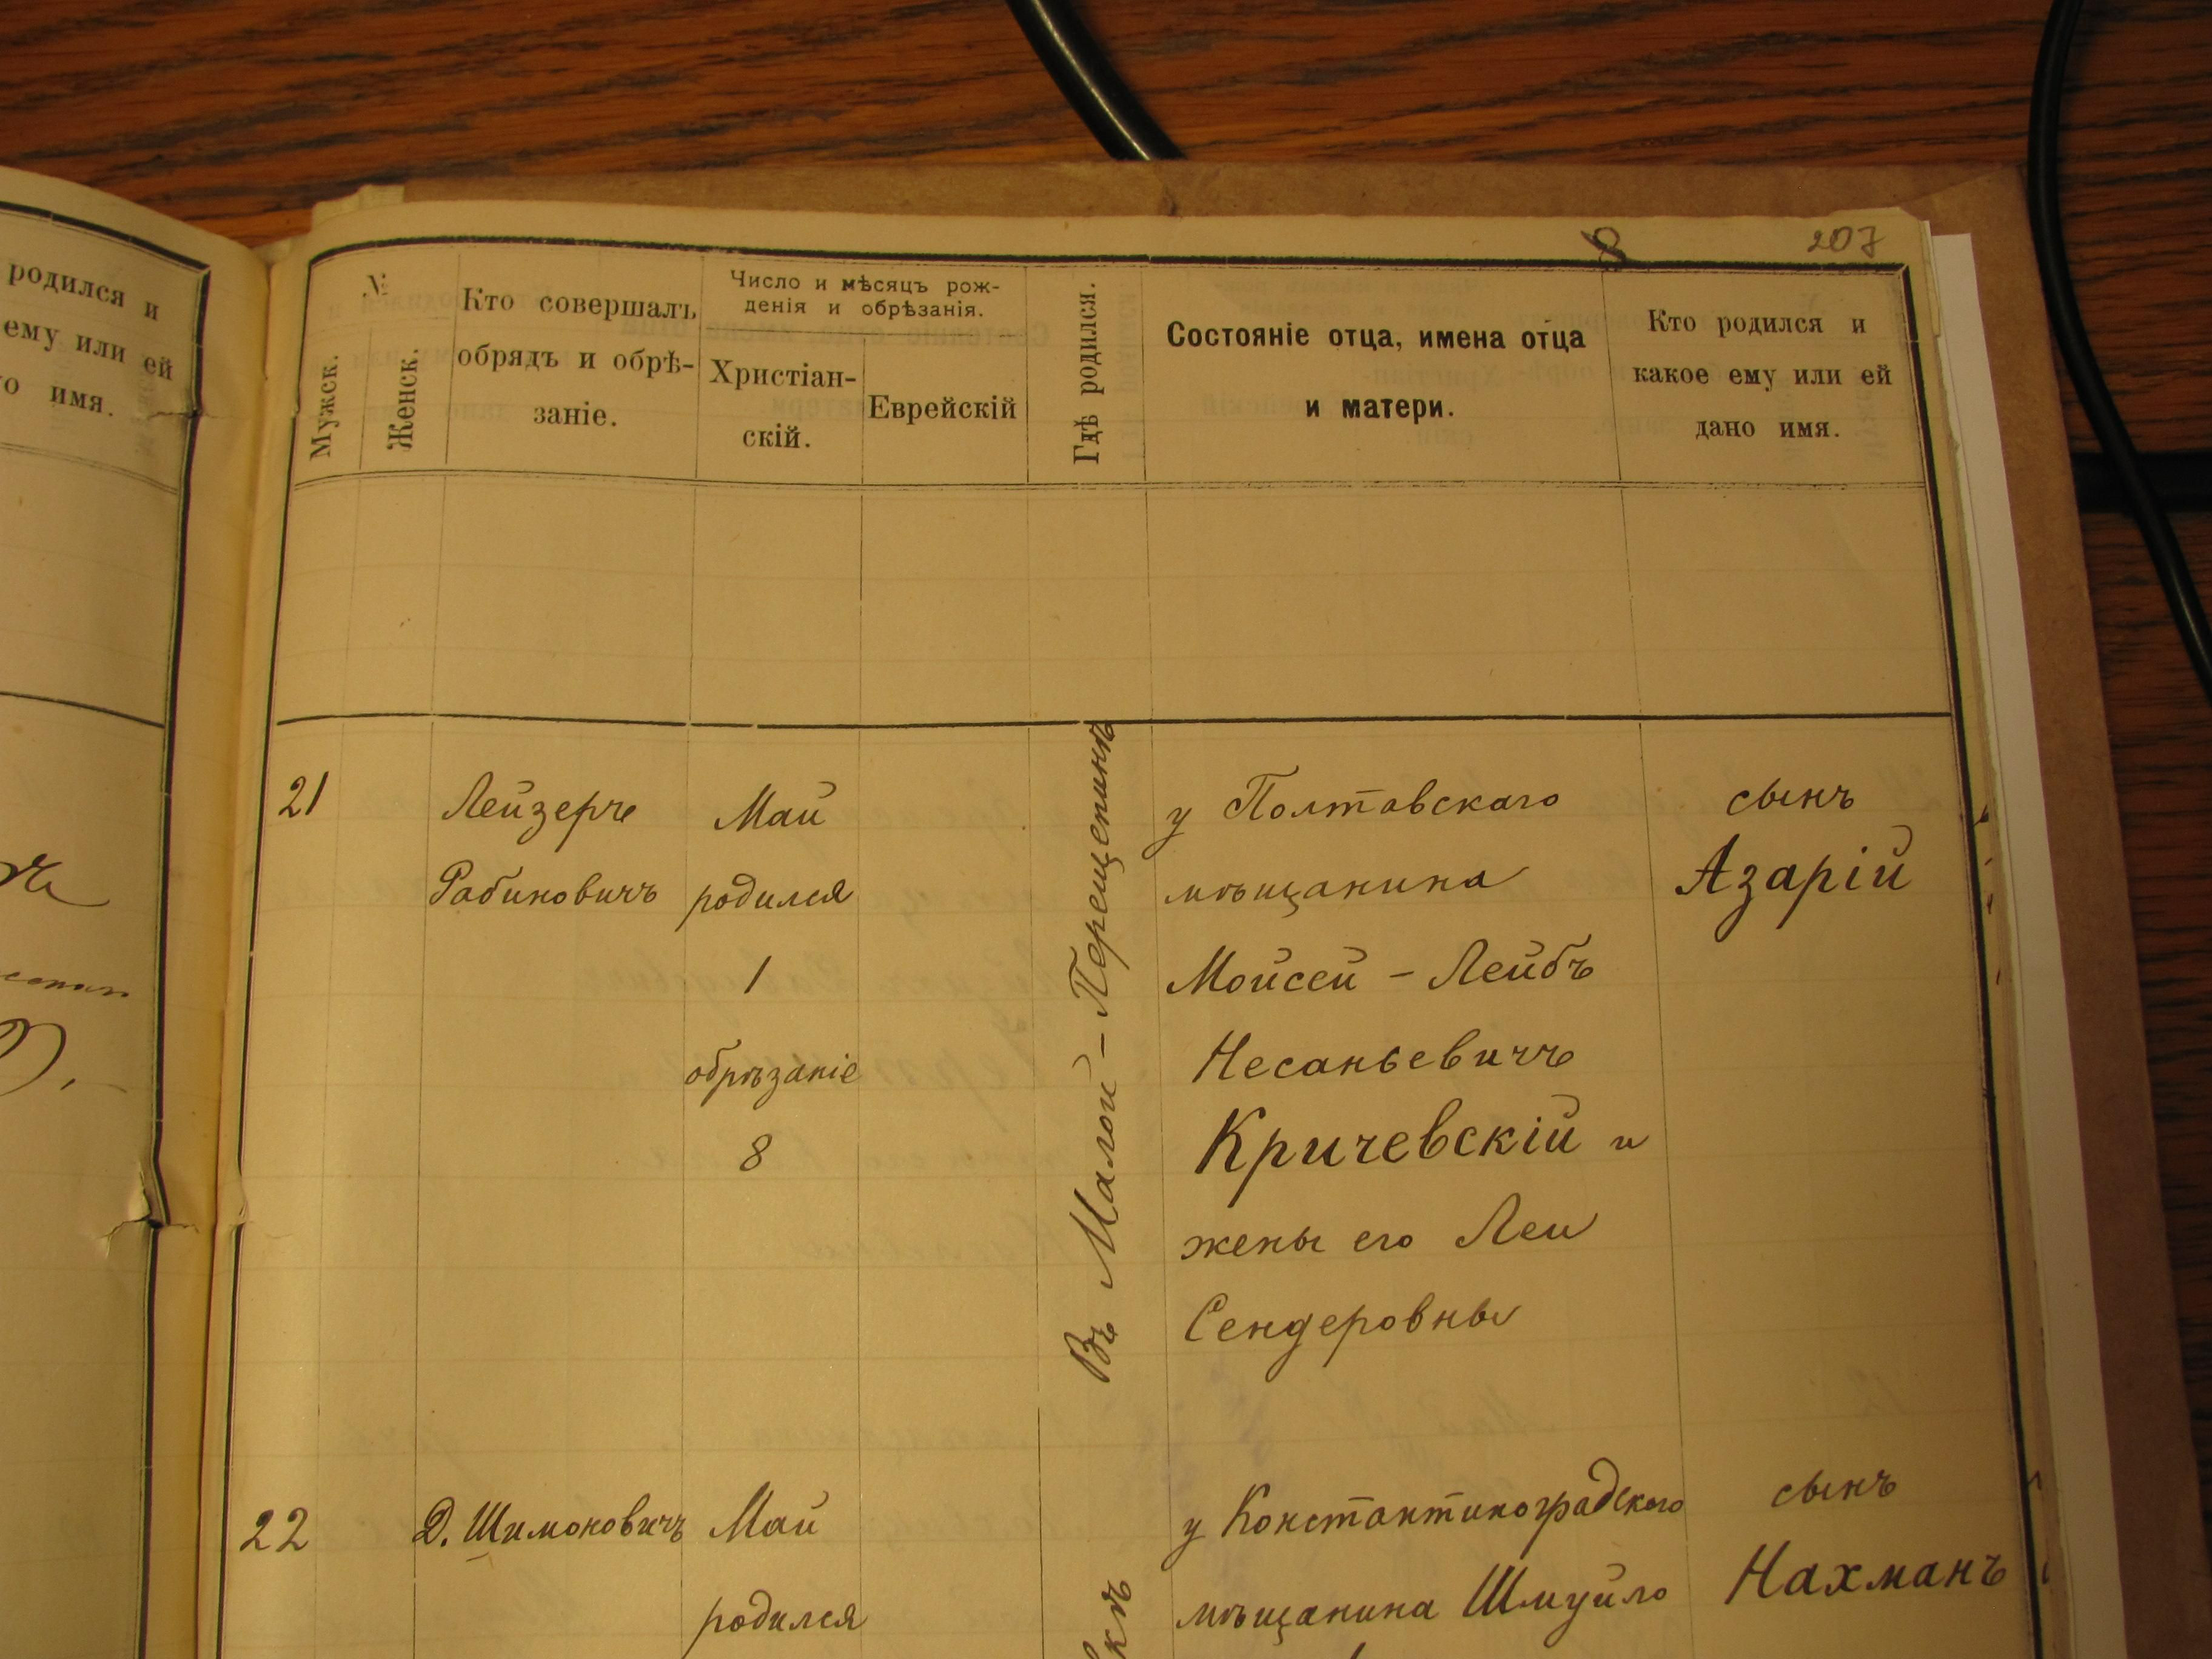 родился и
ему или ей
о имя.
8
207
№
Мужск.
Женск.
Кто совершалъ
обрядъ и обрѣ-
заніе.
Число и мѣсяцъ рож-
денія и обрѣзанія.
Христіан-
скій.
Еврейскій
Гдѣ родился.
Состояніе отца, имена отца
и матери.
Кто родился и
какое ему или ей
дано имя.
21
Лейзеръ
Рабиновичъ
Май
родился
1
обрѣзаніе
8
Въ Малой - Перещепинѣ
у Полтавскаго
мѣщанина
Мойсей - Лейбъ
Несаньевичъ
Кричевскій и
жены его Леи
Сендеровны
сынъ
Азарій
22
Д. Шимоновичъ
Май
родился
у Константиноградскаго
мѣщанина Шмуйло
сынъ
Нахманъ